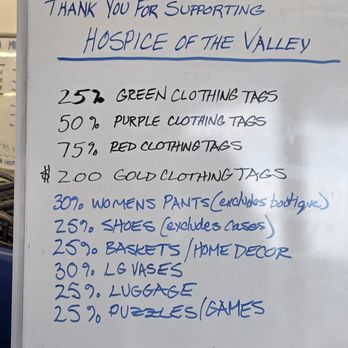 THANK YOU FOR SUPPORTING
HOSPICE OF THE VALLEY
25% GREEN CLOTHING TAGS
50% PURPLE CLOTHING TAGS
75% RED CLOTHING TAGS
$200 GOLD CLOTHING TAGS
30% WOMENS PANTS (excludes boutique)
25% SHOES (excludes cases)
25% BASKETS / HOME DECOR
30% LG VASES
25% LUGGAGE
25% PUZZLES/GAMES